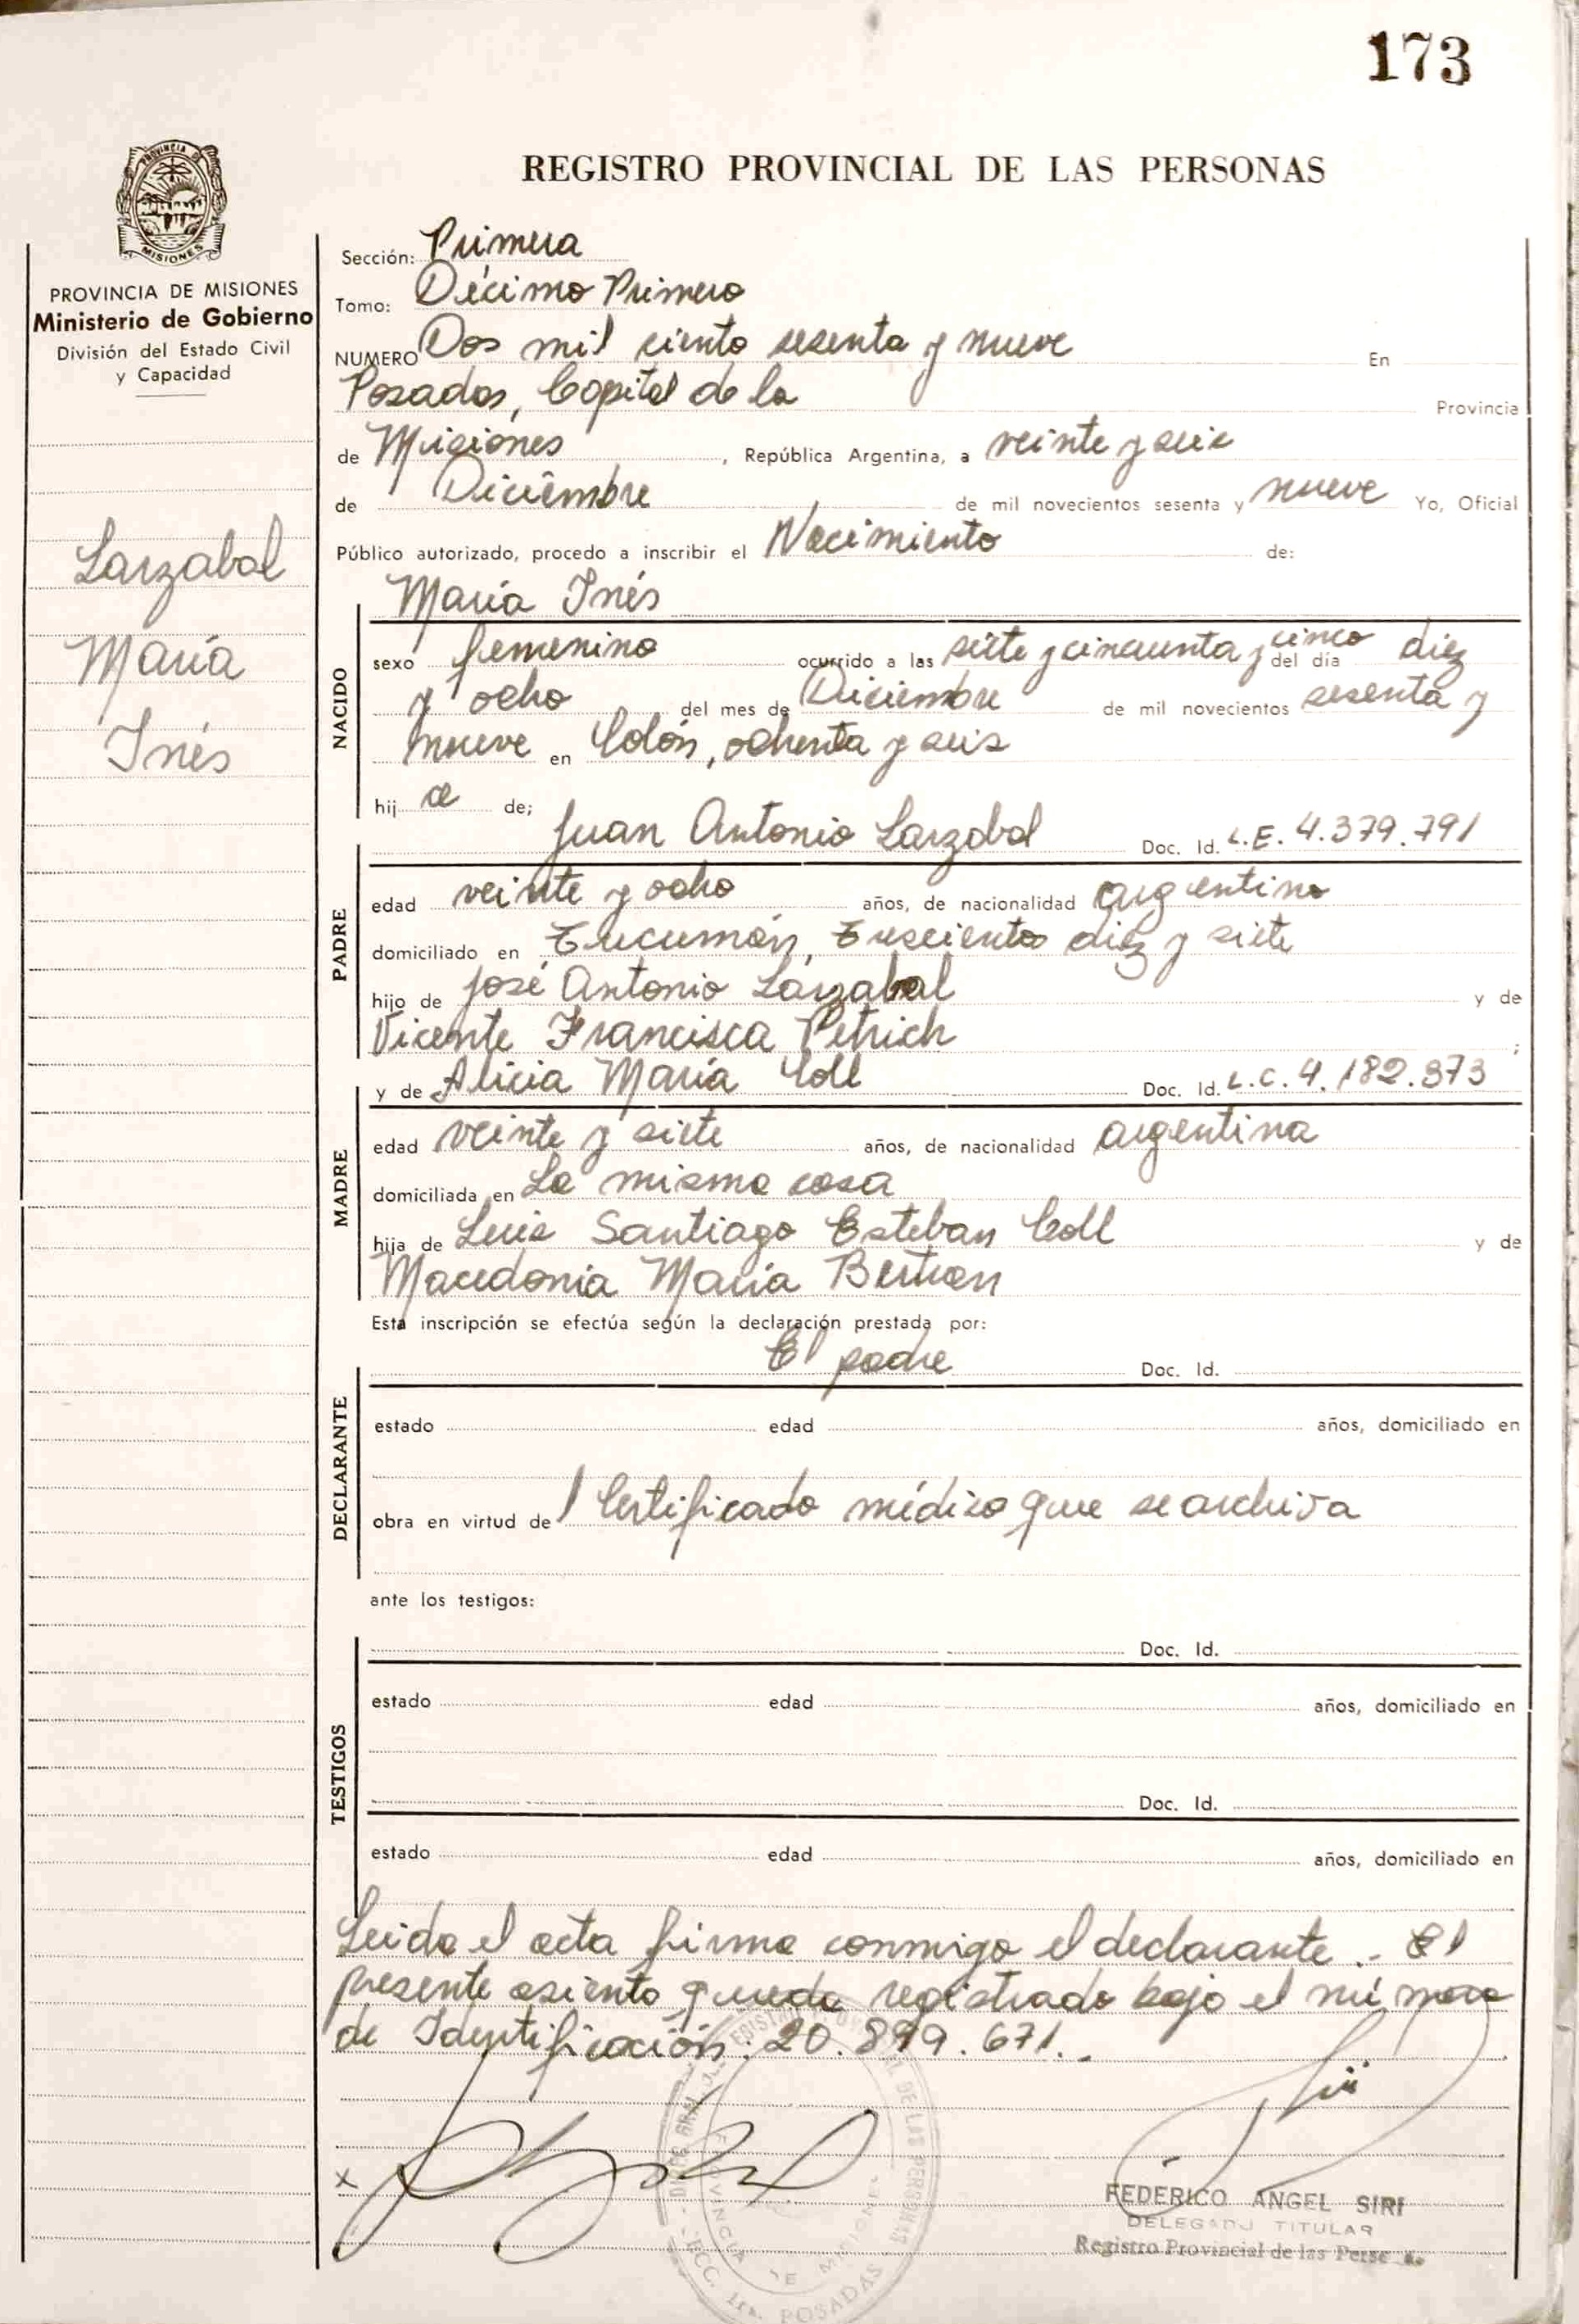 173
REGISTRO PROVINCIAL DE LAS PERSONAS
PROVINCIA
MISIONES
PROVINCIA DE MISIONES
Ministerio de Gobierno
División del Estado Civil
y Capacidad
Larzabal
María
Inés
Sección: Primera
Tomo: Décimo Primero
NUMERO Dos mil ciento sesenta y nueve En
Posadas, Capital de la Provincia
de Misiones, República Argentina, a veinte y seis
de Diciembre de mil novecientos sesenta y nueve Yo, Oficial
Público autorizado, procedo a inscribir el Nacimiento de:
María Inés
NACIDO
sexo femenino ocurrido a las siete y cincuenta y cinco del día diez
y ocho del mes de Diciembre de mil novecientos sesenta y
nueve en Colón, ochenta y seis
hij a de;
Juan Antonio Larzabal Doc. Id. L.E. 4.379.791
PADRE
edad veinte y ocho años, de nacionalidad argentino
domiciliado en Tucumán, Trescientos diez y siete
hijo de José Antonio Larzabal y de
Vicente Francisca Petrich ;
y de Alicia María Coll Doc. Id. L.C. 4.182.373
MADRE
edad veinte y siete años, de nacionalidad argentina
domiciliada en La misma casa
hija de Luis Santiago Esteban Coll y de
Macedonia María Bertran
Esta inscripción se efectúa según la declaración prestada por:
El padre Doc. Id.
DECLARANTE
estado edad años, domiciliado en
obra en virtud de Certificado médico que se archiva
ante los testigos:
Doc. Id.
TESTIGOS
estado edad años, domiciliado en
Doc. Id.
estado edad años, domiciliado en
Leida el acta firma conmigo el declarante.- El
presente asiento queda registrado bajo el número
de Identificación: 20.899.671.-
x
FEDERICO ANGEL SIRI
DELEGADO TITULAR
Registro Provincial de las Perso